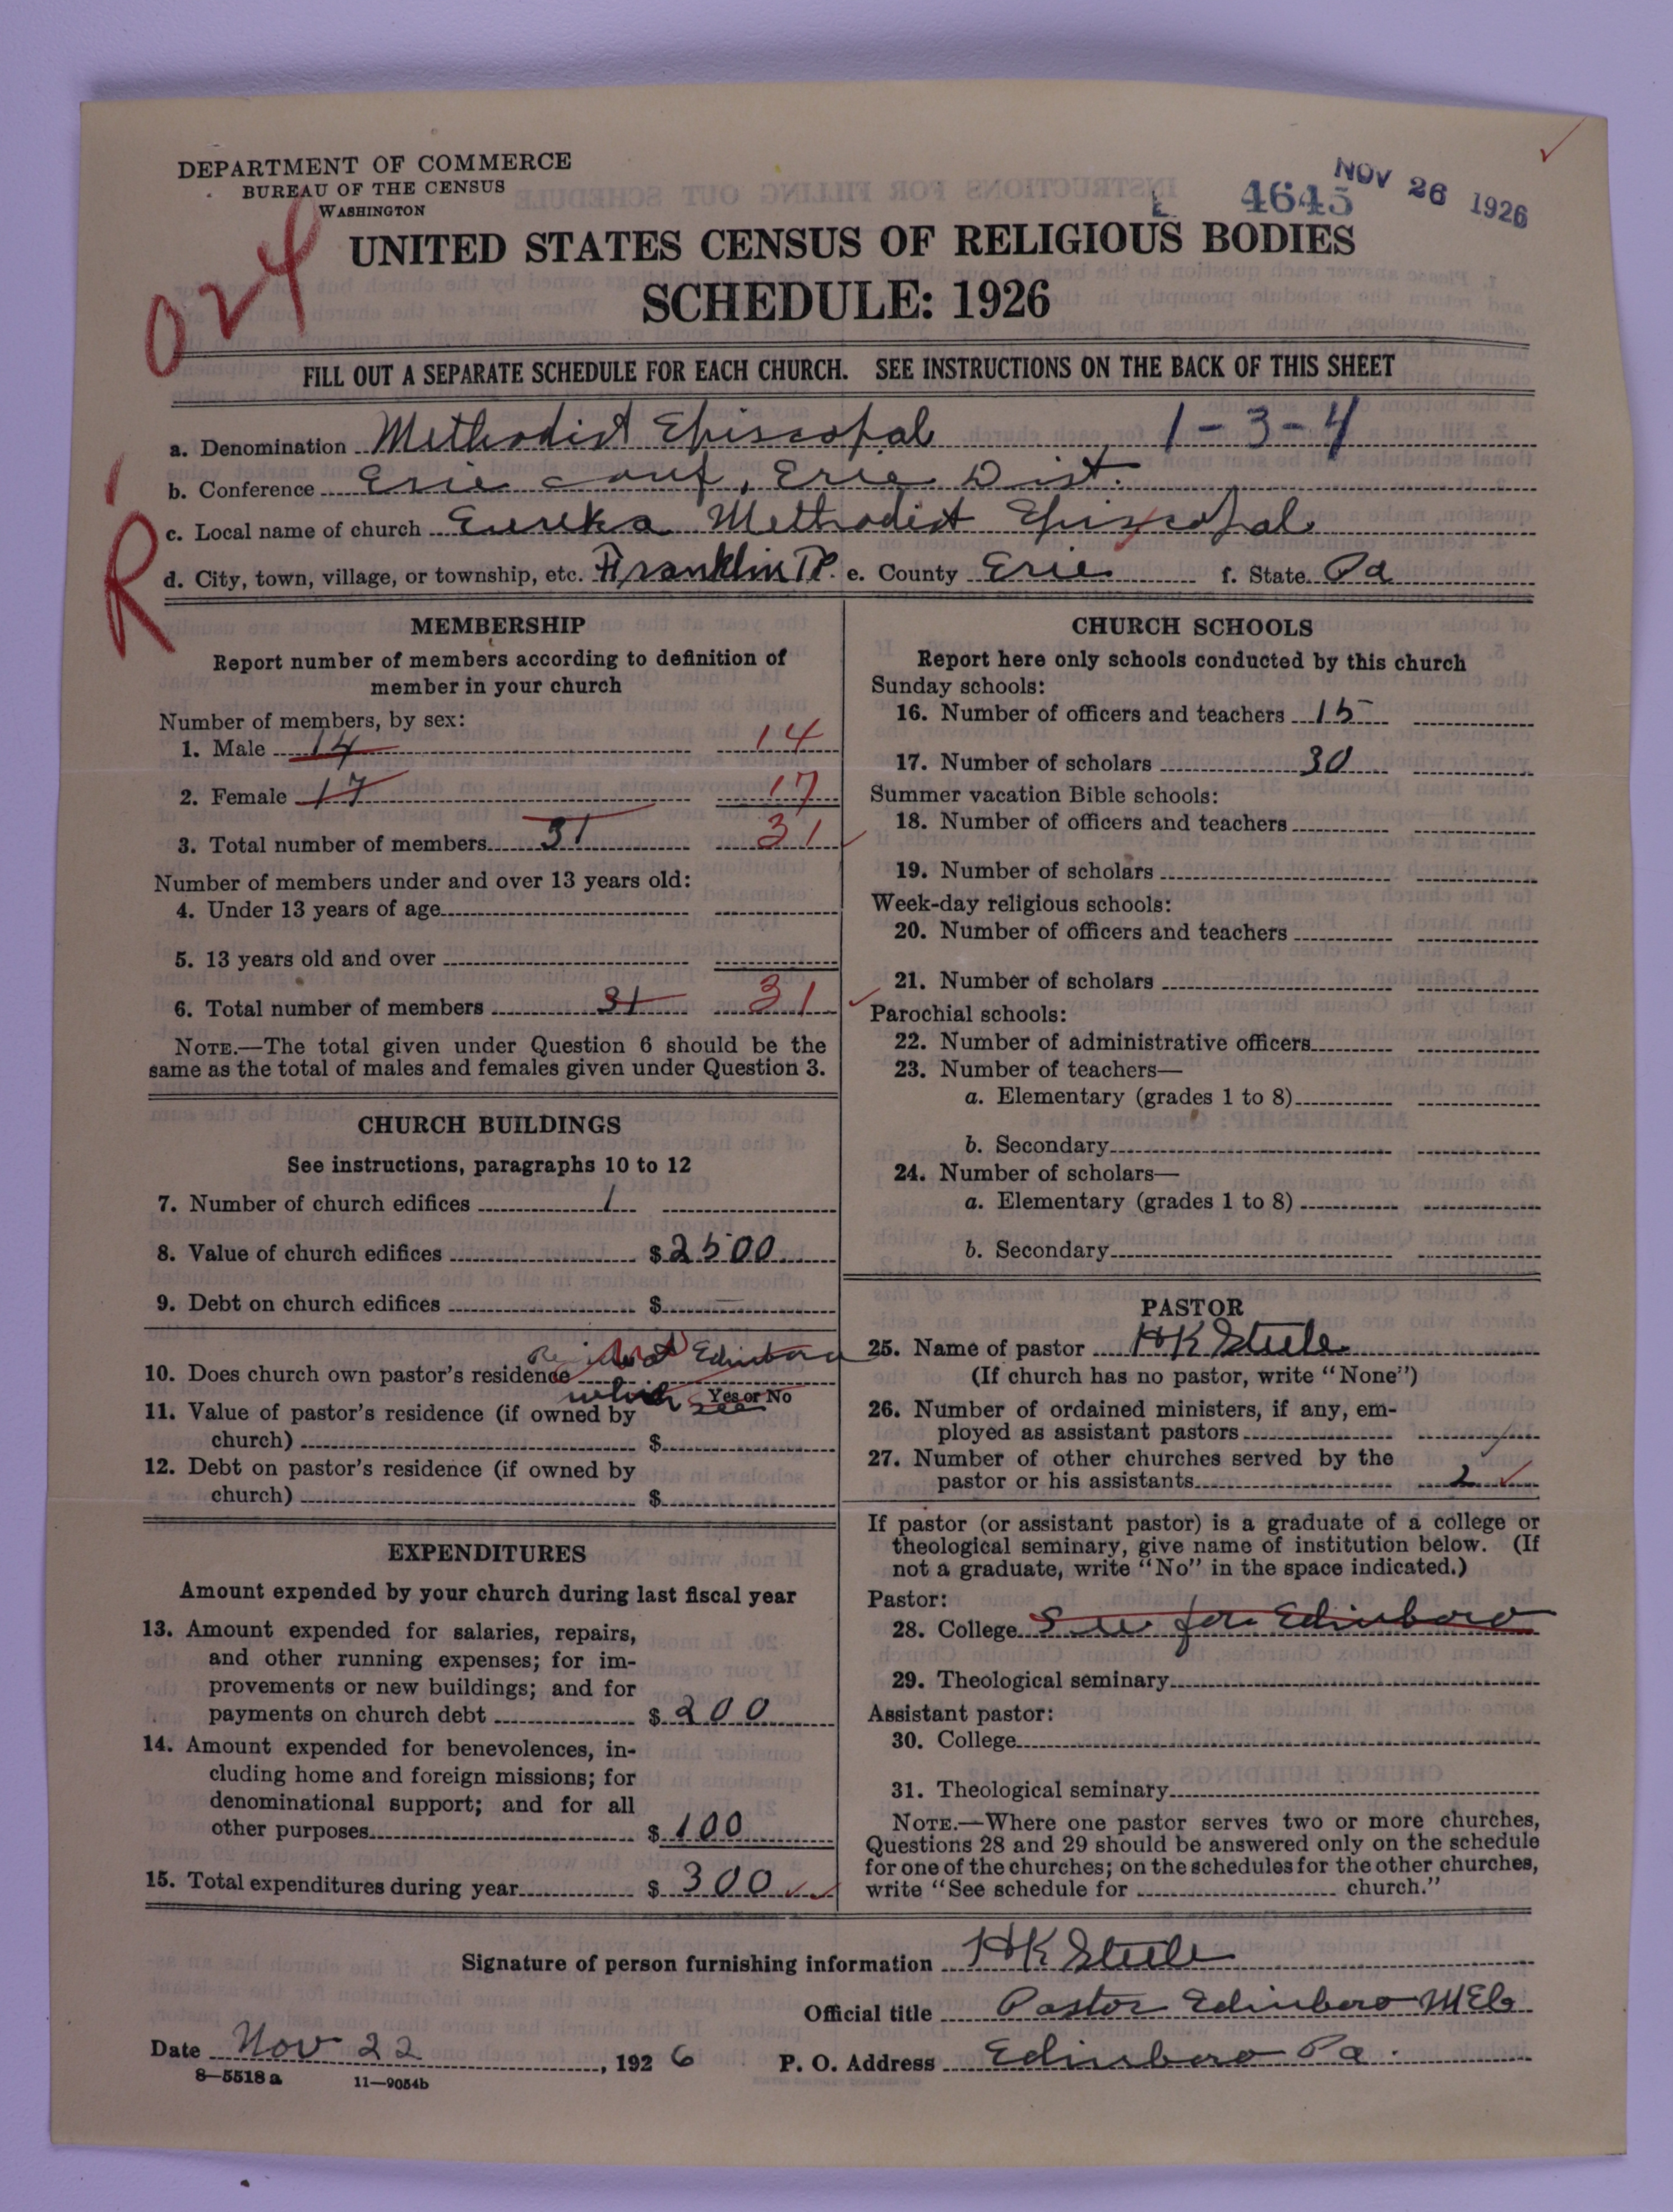 DEPARTMENT OF COMMERCE
BUREAU OF THE CENSUS
WASHINGTON
4645
NOV 26 1926
024
UNITED STATES CENSUS OF RELIGIOUS BODIES
SCHEDULE: 1926
FILL OUT A SEPARATE SCHEDULE FOR EACH CHURCH. SEE INSTRUCTIONS ON THE BACK OF THIS SHEET
a. Denomination Methodist Episcopal 1-3-4
b. Conference Erie Conf, Erie Dist.
c. Local name of church Eureka Methodist Episcopal
R
d. City, town, village, or township, etc. Franklin TP. e. County Erie f. State Pa
MEMBERSHIP
Report number of members according to definition of
member in your church
Number of members, by sex:
1. Male 14 14
2. Female 17 17
3. Total number of members 31 31
Number of members under and over 13 years old:
4. Under 13 years of age
5. 13 years old and over
6. Total number of members 31 31
NOTE.—The total given under Question 6 should be the
same as the total of males and females given under Question 3.
CHURCH BUILDINGS
See instructions, paragraphs 10 to 12
7. Number of church edifices 1
8. Value of church edifices $ 2500
9. Debt on church edifices $
at Edinboro
10. Does church own pastor's residence
which see
Yes or No
11. Value of pastor's residence (if owned by
church) $
12. Debt on pastor's residence (if owned by
church) $
EXPENDITURES
Amount expended by your church during last fiscal year
13. Amount expended for salaries, repairs,
and other running expenses; for im-
provements or new buildings; and for
payments on church debt $ 200
14. Amount expended for benevolences, in-
cluding home and foreign missions; for
denominational support; and for all
other purposes $ 100
15. Total expenditures during year $ 300
CHURCH SCHOOLS
Report here only schools conducted by this church
Sunday schools:
16. Number of officers and teachers 15
17. Number of scholars 30
Summer vacation Bible schools:
18. Number of officers and teachers
19. Number of scholars
Week-day religious schools:
20. Number of officers and teachers
21. Number of scholars
Parochial schools:
22. Number of administrative officers
23. Number of teachers—
a. Elementary (grades 1 to 8)
b. Secondary
24. Number of scholars—
a. Elementary (grades 1 to 8)
b. Secondary
PASTOR
25. Name of pastor HK Steele
(If church has no pastor, write "None")
26. Number of ordained ministers, if any, em-
ployed as assistant pastors
27. Number of other churches served by the
pastor or his assistants 2
If pastor (or assistant pastor) is a graduate of a college or
theological seminary, give name of institution below. (If
not a graduate, write "No" in the space indicated.)
Pastor:
28. College See for Edinboro
29. Theological seminary
Assistant pastor:
30. College
31. Theological seminary
NOTE.—Where one pastor serves two or more churches,
Questions 28 and 29 should be answered only on the schedule
for one of the churches; on the schedules for the other churches,
write "See schedule for church."
Signature of person furnishing information HK Steele
Official title Pastor Edinboro MEC
Date Nov 22, 1926 P. O. Address Edinboro Pa.
8—5518a 11—9054b